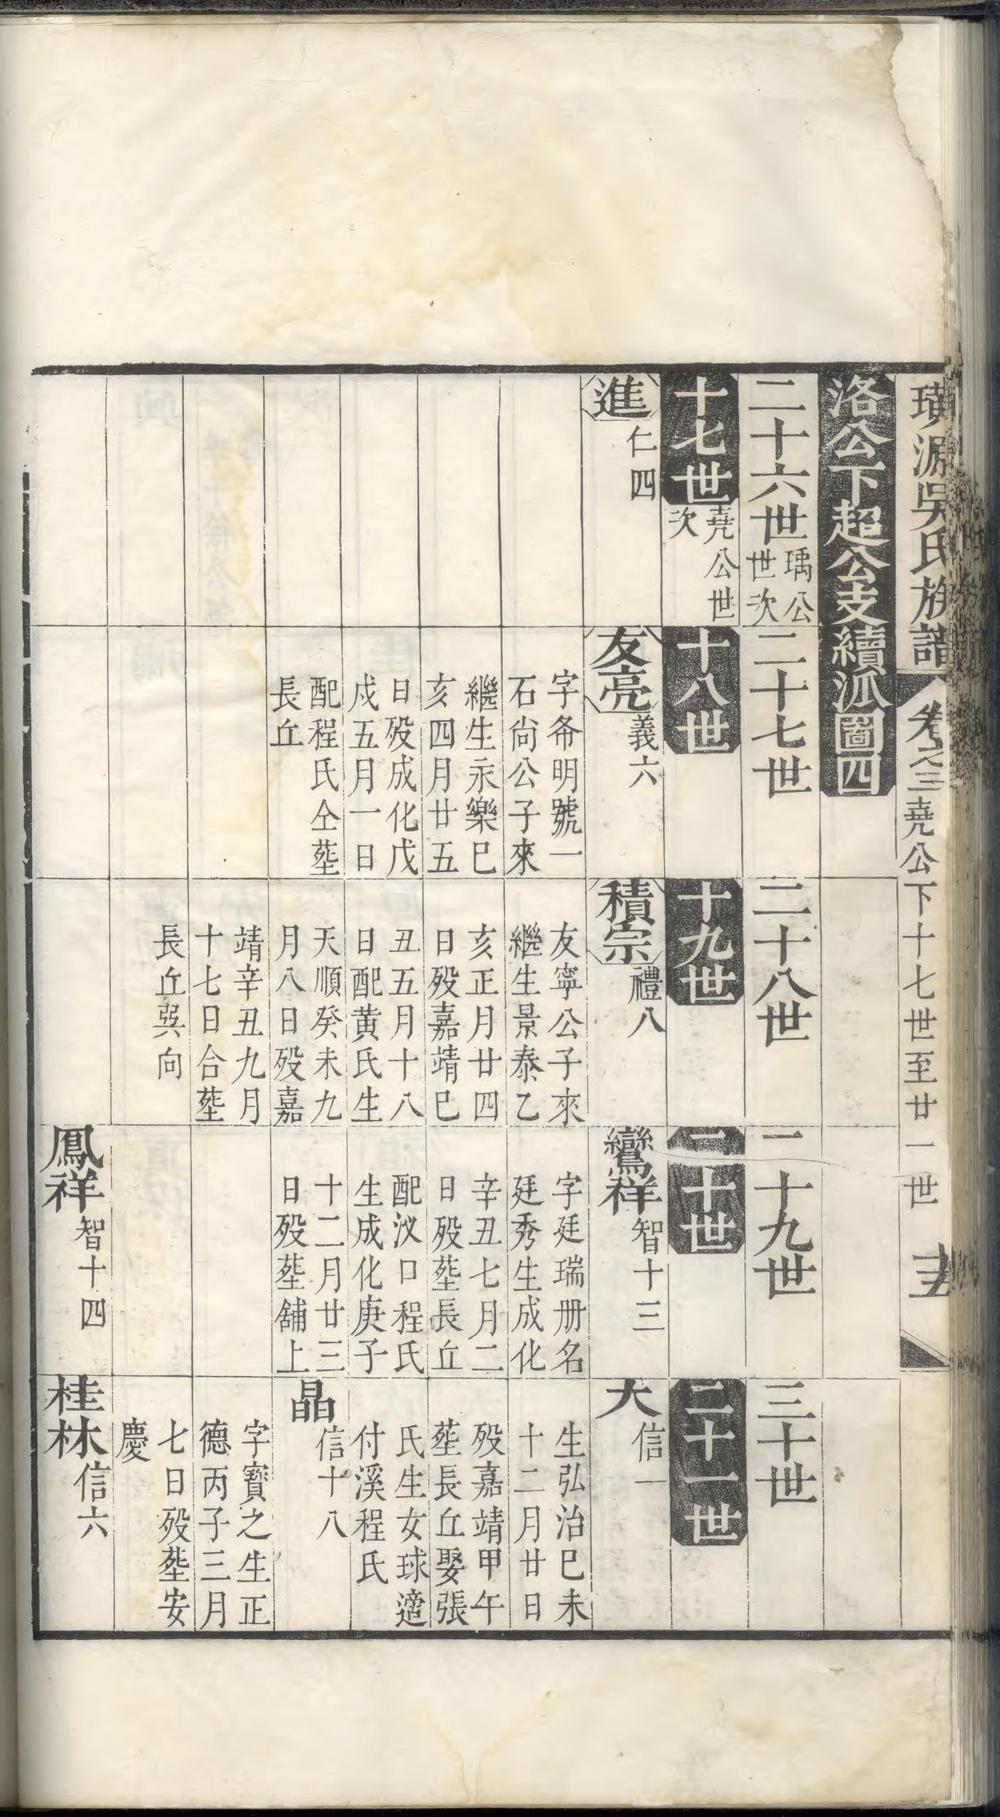 璜源吳氏族譜 卷之三 堯公下十七世至廿一世
洛公下超公支續派圖四
二十六世 瑀公世次
二十七世
二十八世
二十九世
三十世
十七世 堯公世次
十八世
十九世
二十世
二十一世
進 仁四
友亮 義六
字希明號一
石尙公子來
繼生永樂巳
亥四月廿五
日歿成化戊
戍五月一日
配程氏仝塟
長丘
積宗 禮八
友寧公子來
繼生景泰乙
亥正月廿四
日歿嘉靖巳
丑五月十八
日配黄氏生
天順癸未九
月八日歿嘉
靖辛丑九月
十七日合塟
長丘㢲向
鸞祥 智十三
字廷瑞册名
廷秀生成化
辛丑七月二
日歿塟長丘
配汊口程氏
生成化庚子
十二月廿三
日歿塟舖上
鳳祥 智十四
大 信一
生弘治巳未
十二月廿日
歿嘉靖甲午
塟長丘娶張
氏生女球適
付溪程氏
晶 信十八
字寶之生正
德丙子三月
七日歿塟安
慶
桂林 信六